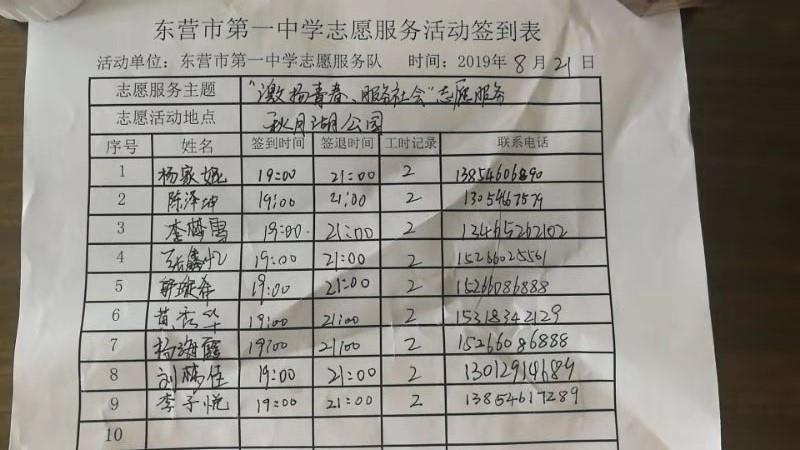 东营市第一中学志愿服务活动签到表
活动单位：东营市第一中学志愿服务队 时间：2019年8月21日
志愿服务主题 "激扬青春、服务社会"志愿服务
志愿活动地点 秋月湖公园
序号 姓名 签到时间 签退时间 工时记录 联系电话
1 杨家妮 19:00 21:00 2 13854606890
2 陈泽坤 19:00 21:00 2 1305467579
3 李梦雪 19:00 21:00 2 13465267102
4 19:00 21:00 2 15266025561
5 19:00 21:00 2 15266086888
6 黄秀华 19:00 21:00 2 15318342129
7 杨海霞 19:00 21:00 2 15266086888
8 19:00 21:00 2 13012914684
9 李子悦 19:00 21:00 2 13854617289
10